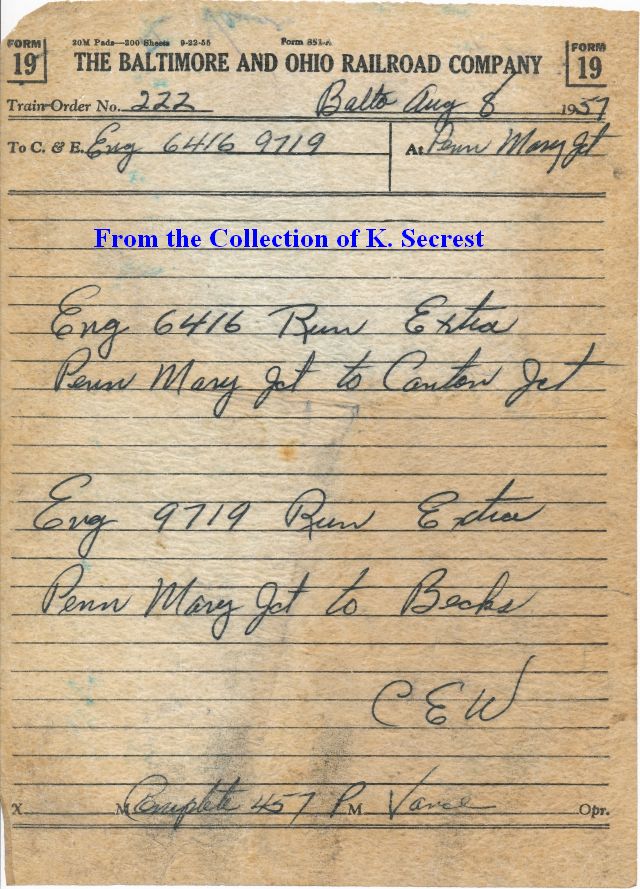 FORM 19
20M Pads—200 Sheets 9-22-55 Form 851-A
FORM 19
THE BALTIMORE AND OHIO RAILROAD COMPANY
Train Order No. 222 Balto Aug 8 1957
To C. & E. Eng 6416 9719 At Penn Mary Jct
From the Collection of K. Secrest
Eng 6416 Run Extra
Penn Mary Jct to Canton Jct
Eng 9719 Run Extra
Penn Mary Jct to Becks
C E W
X M Complete 457 P M Vance Opr.